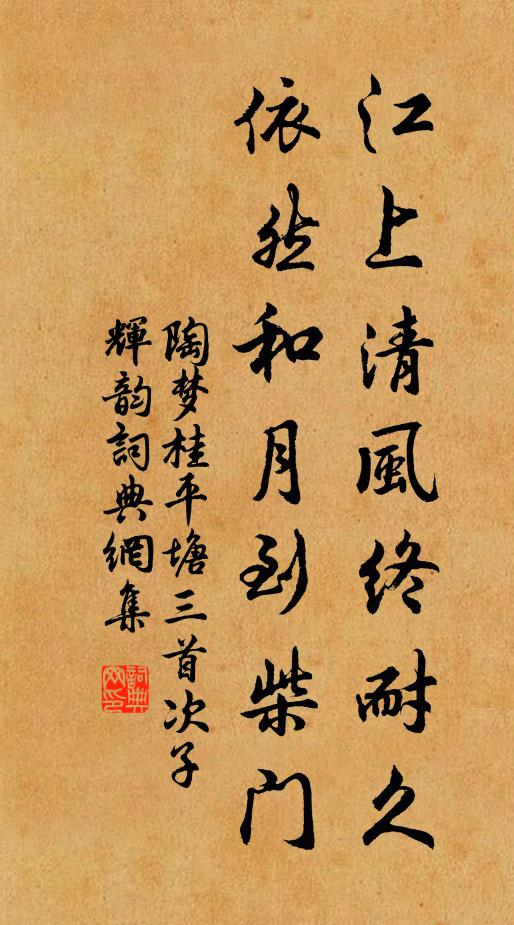 江上清風終耐久
依然和月到柴門
陶梦桂平塘三首次子
輝韵詞典網集
詞典网印